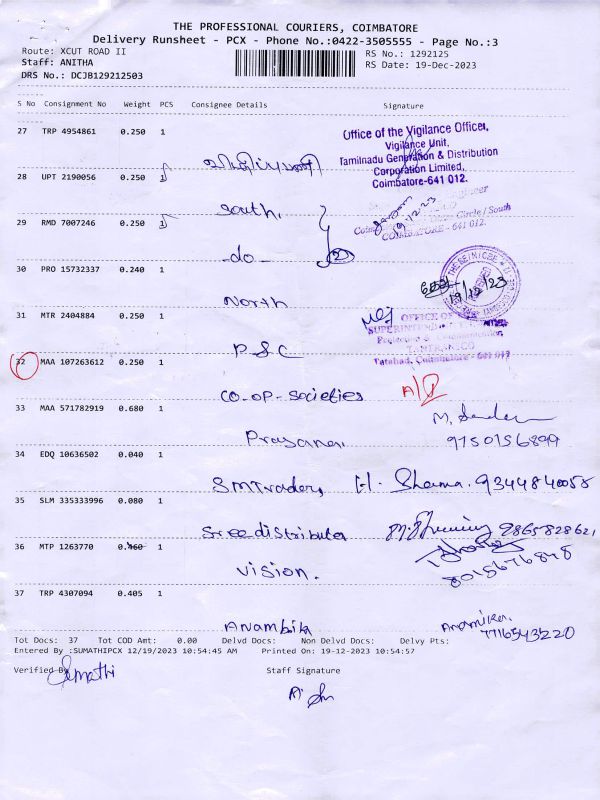 THE PROFESSIONAL COURIERS, COIMBATORE
Delivery Runsheet - PCX - Phone No.:0422-3505555 - Page No.:3
Route: XCUT ROAD II
RS No.: 1292125
Staff: ANITHA
RS Date: 19-Dec-2023
DRS No.: DCJB129212503
S No Consignment No Weight PCS Consignee Details Signature
27 TRP 4954861 0.250 1
Office of the Vigilance Officer,
Vigilance Unit,
Tamilnadu Generation & Distribution
Corporation Limited,
Coimbatore-641 012.
28 UPT 2190056 0.250 1
South,
Circle / South
COIMBATORE - 641 012.
19/12/23
29 RMD 7007246 0.250 1
-do-
30 PRO 15732337 0.240 1
North
19/12/23
31 MTR 2404884 0.250 1
OFFICE OF
P.S.C
TANTRANSCO
Tatabad, Coimbatore - 641 012
32 MAA 107263612 0.250 1
CO-OP-Societies
33 MAA 571782919 0.680 1
Prasana.
9750156899
34 EDQ 10636502 0.040 1
SMTraders H. Sharma. 9344840058
35 SLM 335333996 0.080 1
Sree distributer 9865828621
36 MTP 1263770 0.460 1
Vision. 8015676848
37 TRP 4307094 0.405 1
Anambika Anamika. 7716543220
Tot Docs: 37 Tot COD Amt: 0.00 Delvd Docs: Non Delvd Docs: Delvy Pts:
Entered By :SUMATHIPCX 12/19/2023 10:54:45 AM Printed On: 19-12-2023 10:54:57
Verified By Sumathi
Staff Signature